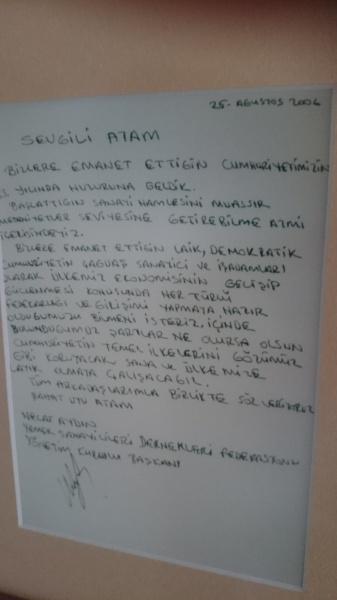 25. AĞUSTOS 2006
SEVGİLİ ATAM
BİZLERE EMANET ETTİĞİN CUMHURİYETİMİZİN
YILINDA HUZURUNA GELDİK.
BAŞLATTIĞIN SANAYİ HAMLESİNİ MUASSIR
MEDENİYETLER SEVİYESİNE GETİREBİLME AZMİ
İÇERİSİNDEYİZ.
BİZLERE EMANET ETTİĞİN LAİK, DEMOKRATİK
CUMHURİYETİN ÇAĞDAŞ SANAYİCİ VE İŞADAMLARI
OLARAK ÜLKEMİZ EKONOMİSİNİN GELİŞİP
GÜÇLENMESİ KONUSUNDA HER TÜRLÜ
FEDEKARLIĞI VE GİRİŞİMİ YAPMAYA HAZIR
OLDUĞUMUZU BİLMENİ İSTERİZ. İÇİNDE
BULUNDUĞUMUZ ŞARTLAR NE OLURSA OLSUN
CUMHURİYETİN TEMEL İLKELERİNİ GÖZÜMÜZ
GİBİ KORUYACAK SANA VE ÜLKEMİZE
LAYIK OLMAYA ÇALIŞACAĞIZ.
TÜM ARKADAŞLARIMLA BİRLİKTE SÖZ VERİYORUZ
RAHAT UYU ATAM
NECAT AYDIN
YEMEK SANAYİCİLERİ DERNEKLERİ FEDERASYONU
YÖNETİM KURULU BAŞKANI